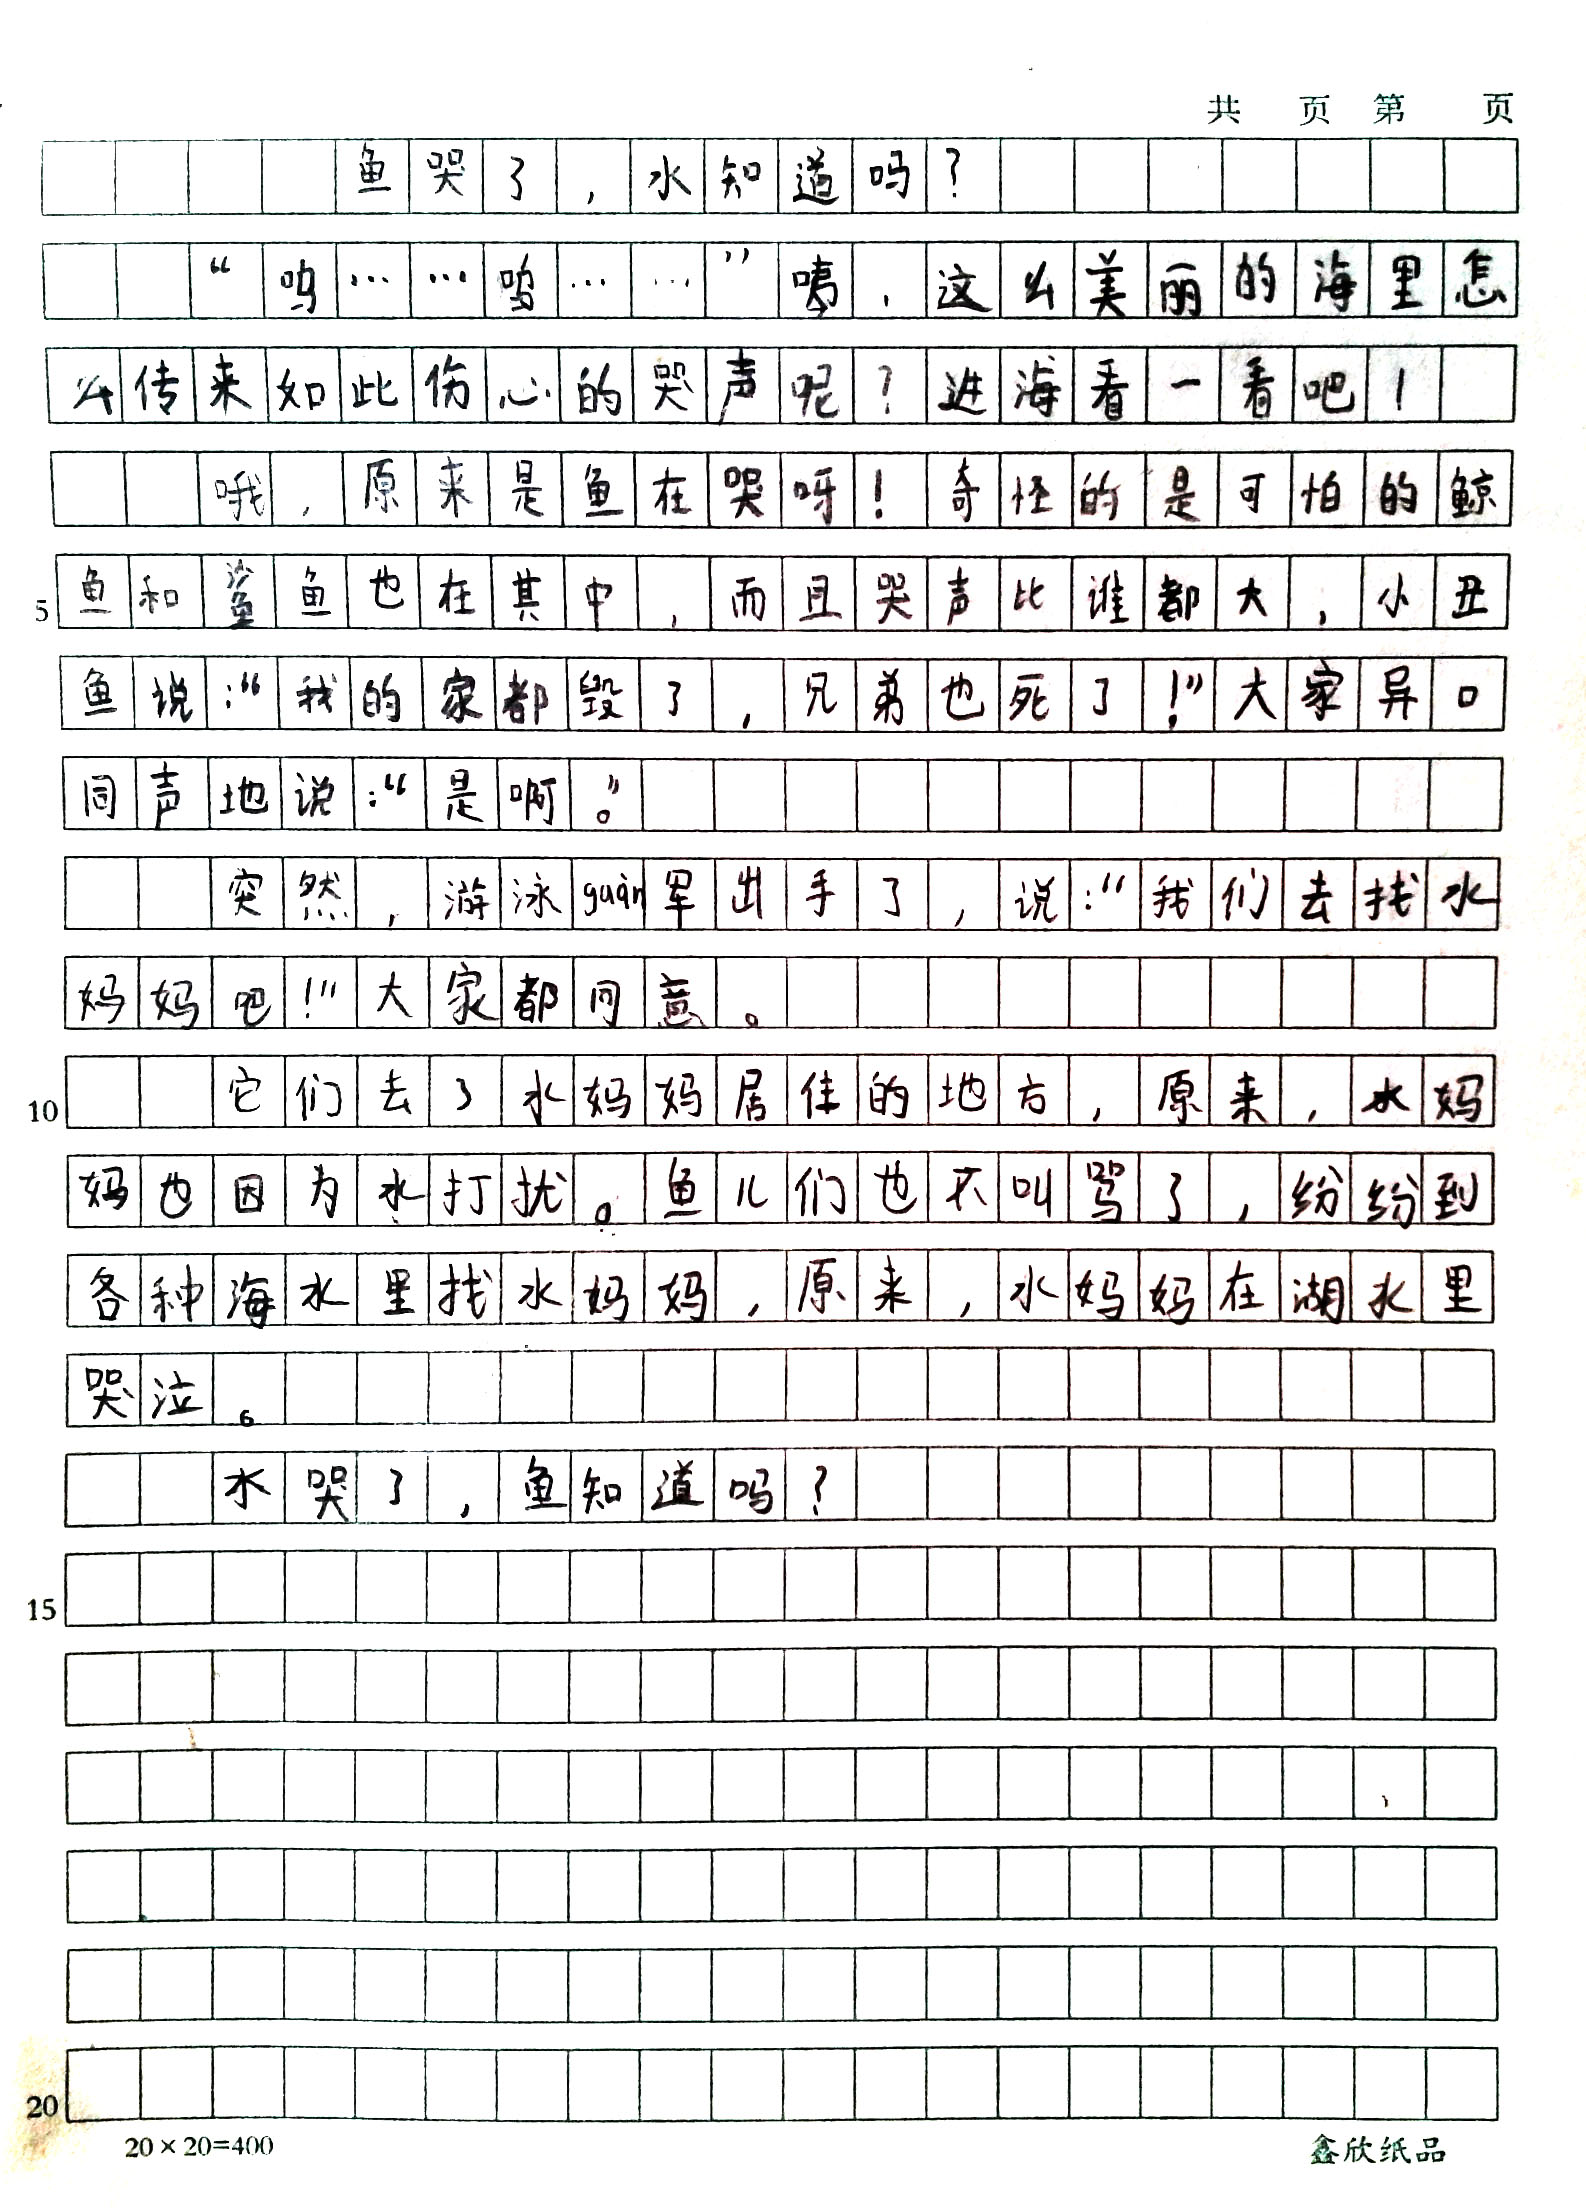 共 页 第 页
鱼哭了，水知道吗？
“呜……呜……”咦，这么美丽的海里怎
么传来如此伤心的哭声呢？进海看一看吧！
哦，原来是鱼在哭呀！奇怪的是可怕的鲸
5 鱼和鲨鱼也在其中，而且哭声比谁都大，小丑
鱼说：“我的家都毁了，兄弟也死了！”大家异口
同声地说：“是啊。”
突然，游泳guàn军出手了，说：“我们去找水
妈妈吧！”大家都同意。
10 它们去了水妈妈居住的地方，原来，水妈
妈也因为水打扰。鱼儿们也不叫骂了，纷纷到
各种海水里找水妈妈，原来，水妈妈在湖水里
哭泣。
水哭了，鱼知道吗？
15
20
20×20=400 鑫欣纸品